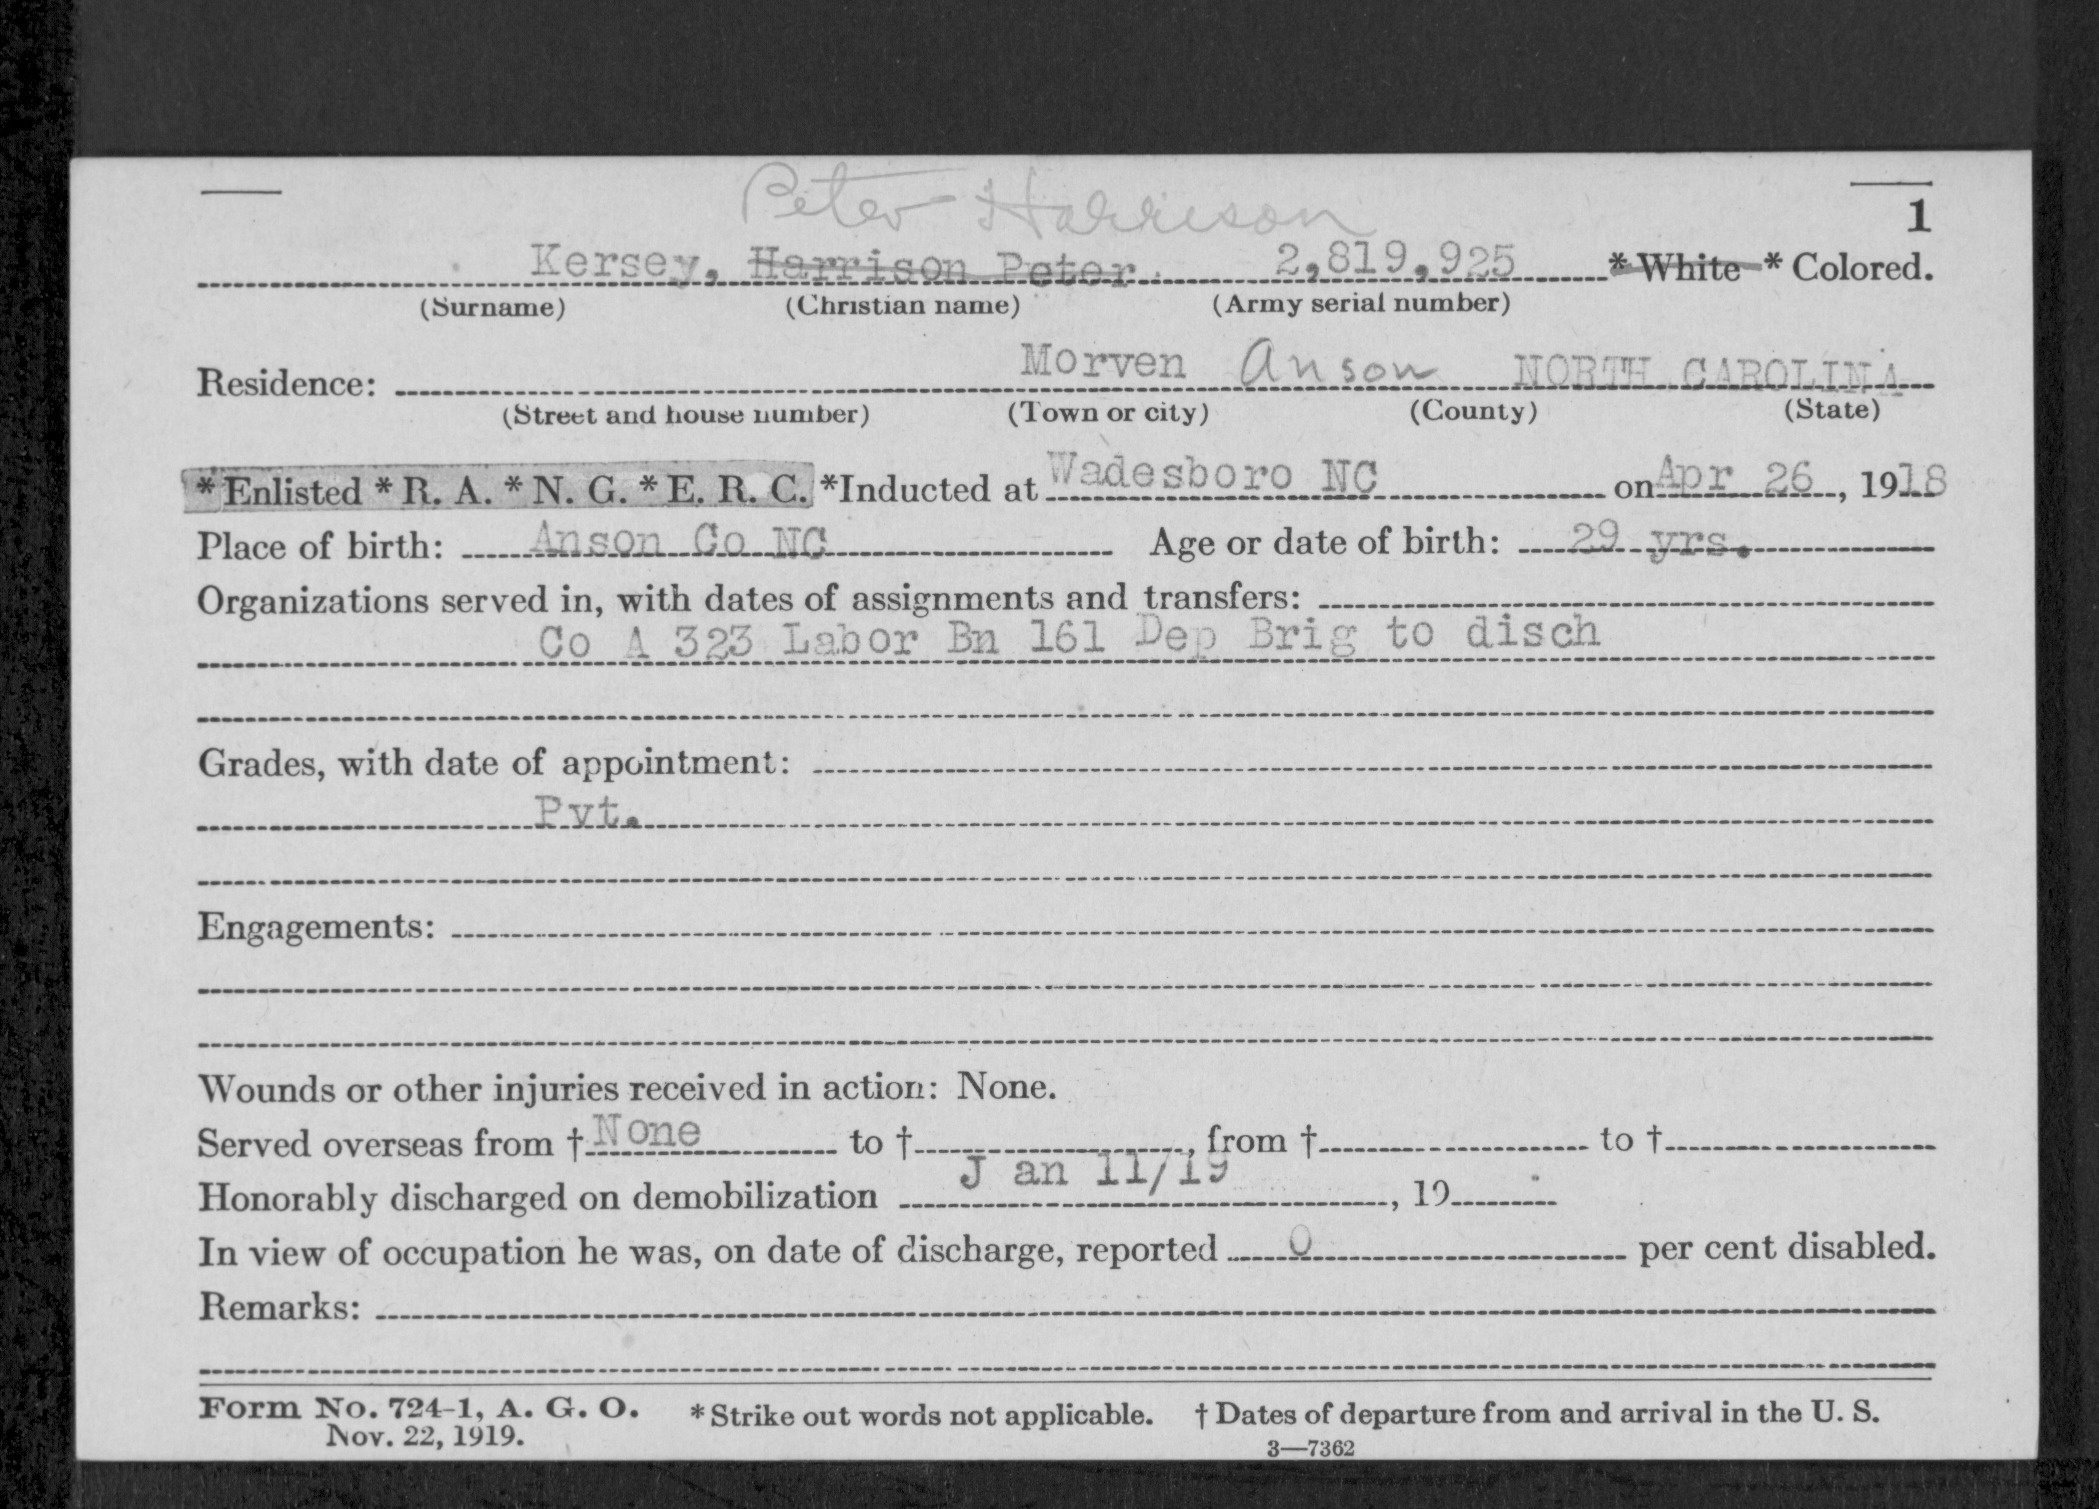 Peter Harrison
1
Kersey, Harrison Peter 2,819,925 * White * Colored.
(Surname) (Christian name) (Army serial number)
Residence: Morven Anson NORTH CAROLINA
(Street and house number) (Town or city) (County) (State)
*Enlisted *R. A. *N. G. *E. R. C. *Inducted at Wadesboro NC on Apr 26, 1918
Place of birth: Anson Co NC Age or date of birth: 29 yrs.
Organizations served in, with dates of assignments and transfers:
Co A 323 Labor Bn 161 Dep Brig to disch
Grades, with date of appointment:
Pvt.
Engagements:
Wounds or other injuries received in action: None.
Served overseas from † None to †, from † to †
Honorably discharged on demobilization Jan 11/19, 19
In view of occupation he was, on date of discharge, reported 0 per cent disabled.
Remarks:
Form No. 724-1, A. G. O. *Strike out words not applicable. † Dates of departure from and arrival in the U. S.
Nov. 22, 1919. 3—7362